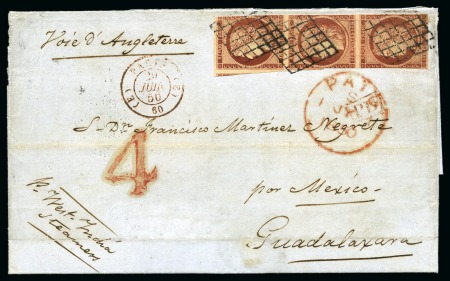 Voie d'Angleterre
PARIS
60
PAID
S. Dn. Francisco Martinez Negrete
4
por Mexico
Guadalaxara
pr West India
Steamers